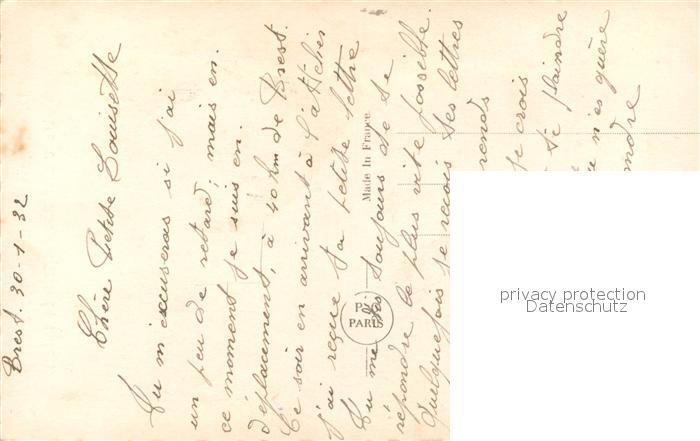 Brest. 30-1-32
Chère Petite Louisette
Tu m'excuseras si j'ai
un peu de retard; mais en
ce moment je suis en
déplacement, à 40 km de Brest.
Ce soir en arrivant à l'atelier
j'ai reçue ta petite lettre
Tu me dis toujours de te
répondre le plus vite possible.
Quelquefois je reçois tes lettres
rends
Je crois
te plaindre
tu n'es guère
ondre
Made In France
PARIS
privacy protection
Datenschutz